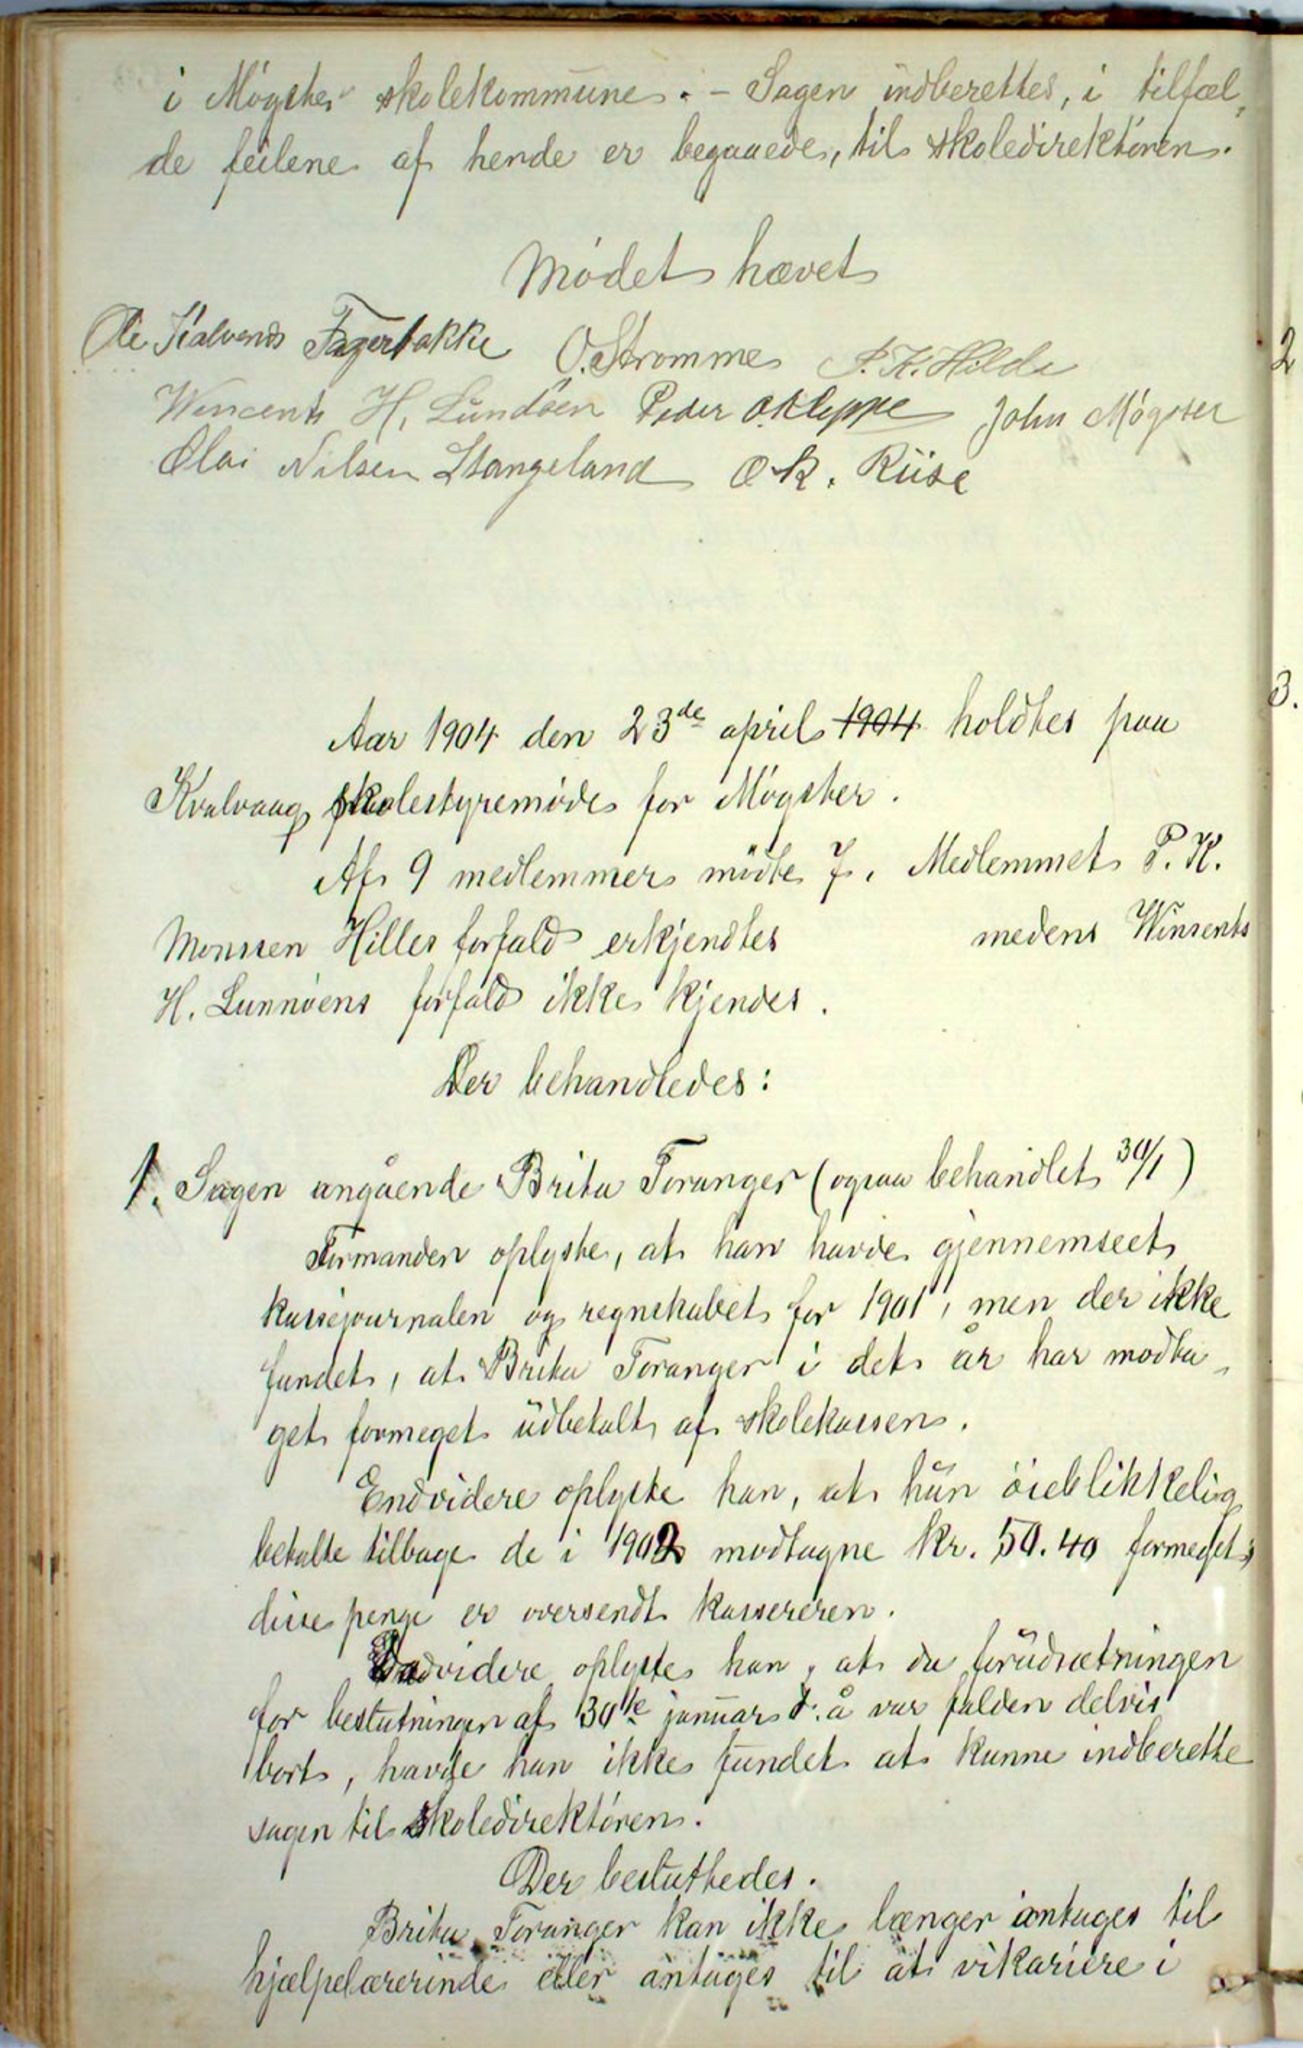 i Møgster skolekommune. - Sagen indberettes, i tilfæl,
de feilene af hende er begaaede, til skoledirektøren.
Mødet hævet
Ole Kalvenes Fagerbakke O. Strømme P. K. Hilde
Wincents H. Lundøen Peder O. Kleppe John Møgster
Olai Nilsen Stangeland O. K. Riise
Aar 1904 den 23de april 1904 holdtes paa
Kvalvaag skolestyremøde for Møgster.
Af 9 medlemmer mødte 7. Medlemmet P. K.
Monssen Hilles forfald erkjendtes medens Winsents
H. Lunnøens forfald ikke kjendes.
Der behandledes:
1. Sagen angående Brita Toranger (ogsaa behandlet 30/1)
Formanden oplyste, at han havde gjennemseet
kassejournalen og regnskabet for 1901, men der ikke
fundet, at Brita Toranger i det år har modta-
get formeget üdbetalt af skolekassen.
Endvidere oplyste han, at hün öieblikkelig
betalte tilbage de i 1902 modtagne kr. 50.40 formeget,
disse penge er oversendt kassereren.
Endvidere oplyste han, at da forüdsætningen
for beslutningen af 30te januar d. å var falden delvis
bort, havde han ikke fundet at kunne indberette
sagen til skoledirektøren.
Der besluttedes.
Brita Toranger kan ikke længer antages til
hjælpelærerinde eller antages til at vikariere i
2
3.